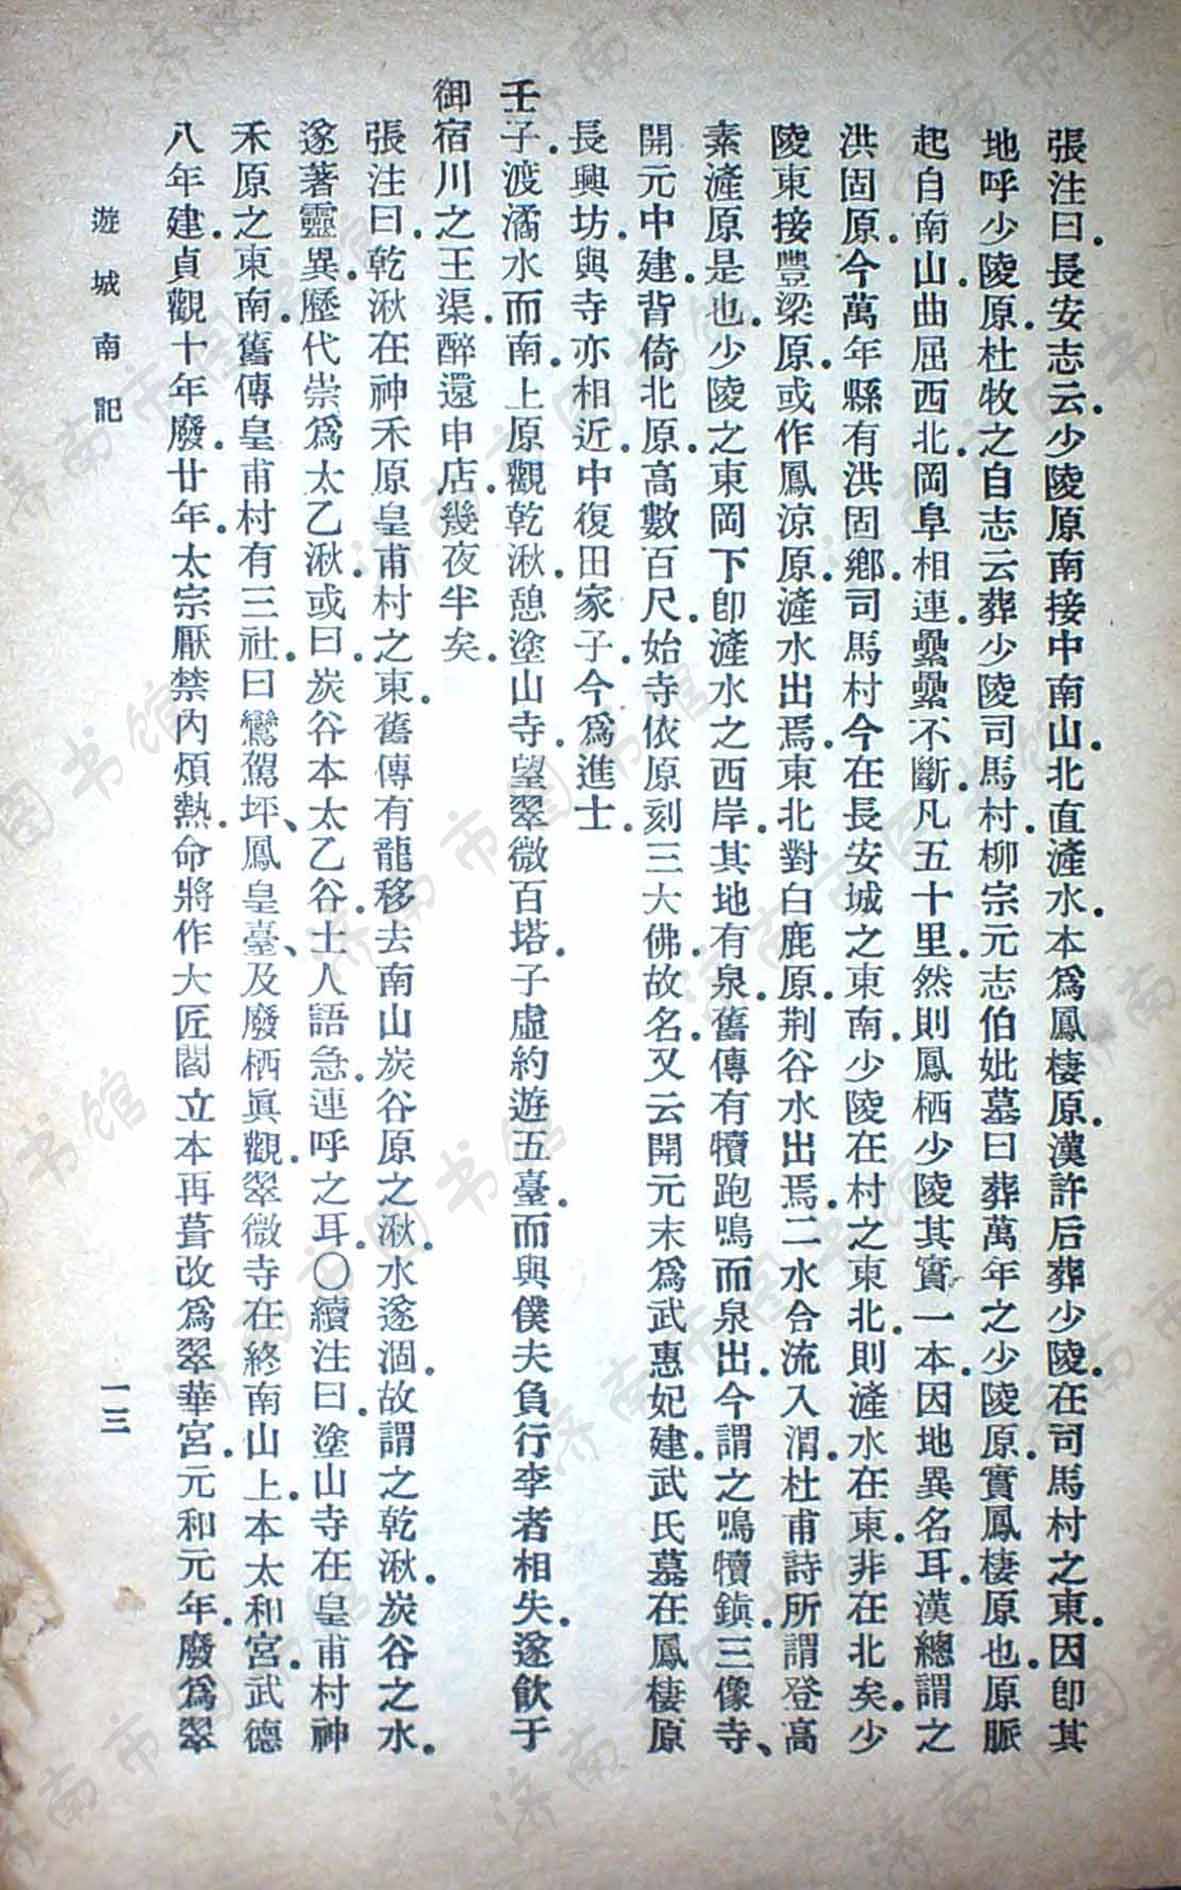 張注曰.長安志云.少陵原南接中南山.北直滻水.本爲鳳棲原.漢許后葬少陵.在司馬村之東.因卽其
地呼少陵原.杜牧之自志云葬少陵司馬村.柳宗元志伯妣墓曰葬萬年之少陵原.實鳳棲原也.原脈
起自南山.曲屈西北.岡阜相連.纍纍不斷.凡五十里.然則鳳栖少陵其實一本.因地異名耳.漢總謂之
洪固原.今萬年縣有洪固鄉.司馬村今在長安城之東南.少陵在村之東北.則滻水在東.非在北矣.少
陵東接豐梁原.或作鳳涼原.滻水出焉.東北對白鹿原.荆谷水出焉.二水合流入渭.杜甫詩所謂登高
素滻原是也.少陵之東岡下卽滻水之西岸.其地有泉.舊傳有犢跑鳴而泉出.今謂之鳴犢鎭.三像寺、
開元中建.背倚北原.高數百尺.始寺依原刻三大佛.故名.又云開元末爲武惠妃建.武氏墓在鳳棲原
長興坊.與寺亦相近.中復田家子.今爲進士.
壬子.渡潏水而南.上原觀乾湫.憩塗山寺.望翠微百塔.子虛約遊五臺.而與僕夫負行李者相失.遂飲于
御宿川之王渠.醉還申店.幾夜半矣.
張注曰.乾湫在神禾原皇甫村之東.舊傳有龍移去南山炭谷.原之湫.水遂涸.故謂之乾湫.炭谷之水.
遂著靈異.歷代崇爲太乙湫.或曰.炭谷本太乙谷.士人語急.連呼之耳.〇續注曰.塗山寺在皇甫村神
禾原之東南.舊傳皇甫村有三社.曰鸞駕坪、鳳皇臺、及廢栖眞觀.翠微寺在終南山上.本太和宮.武德
八年建.貞觀十年廢.廿年.太宗厭禁內煩熱.命將作大匠閻立本再葺.改爲翠華宮.元和元年.廢爲翠
遊城南記
一三